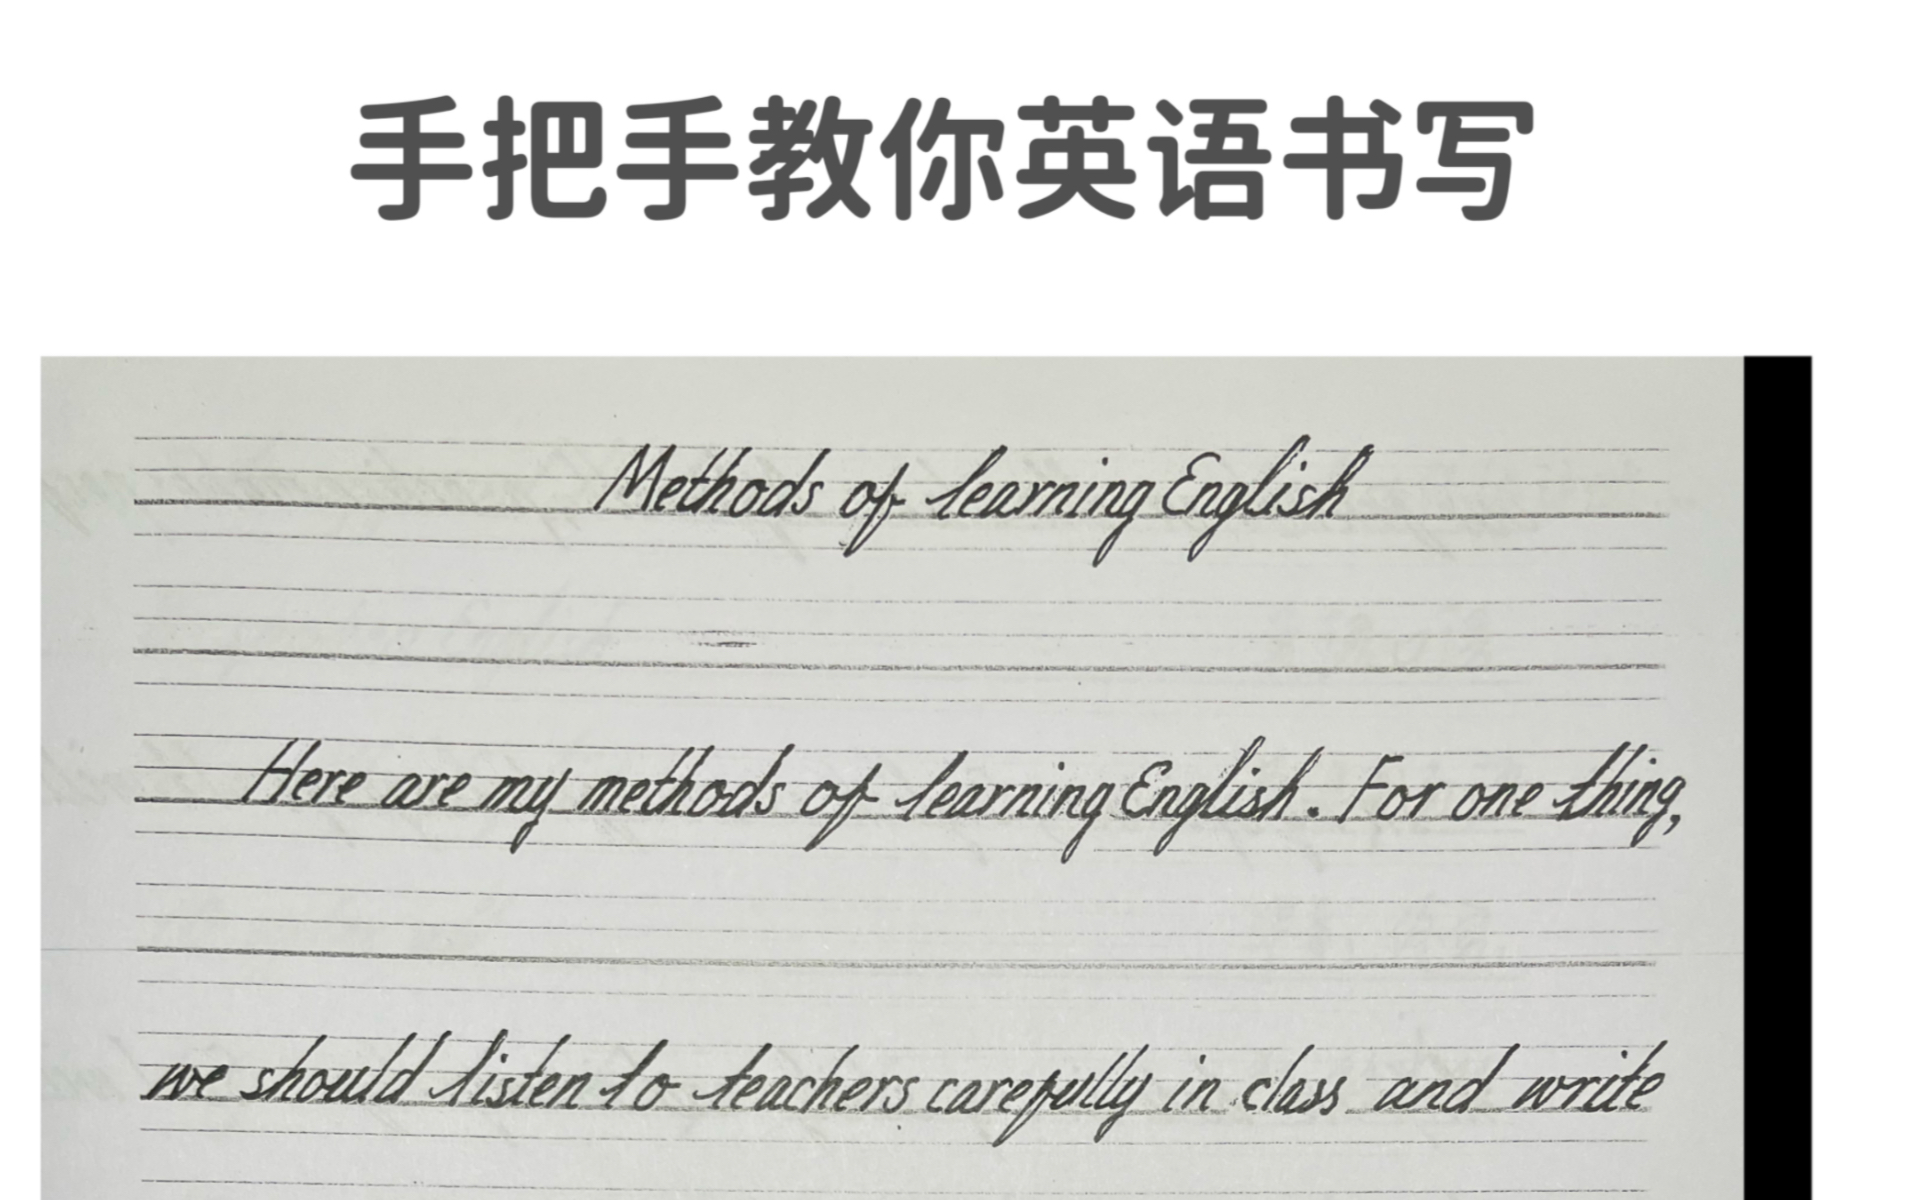 手把手教你英语书写
Methods of learning English
Here are my methods of learning English. For one thing,
we should listen to teachers carefully in class and write